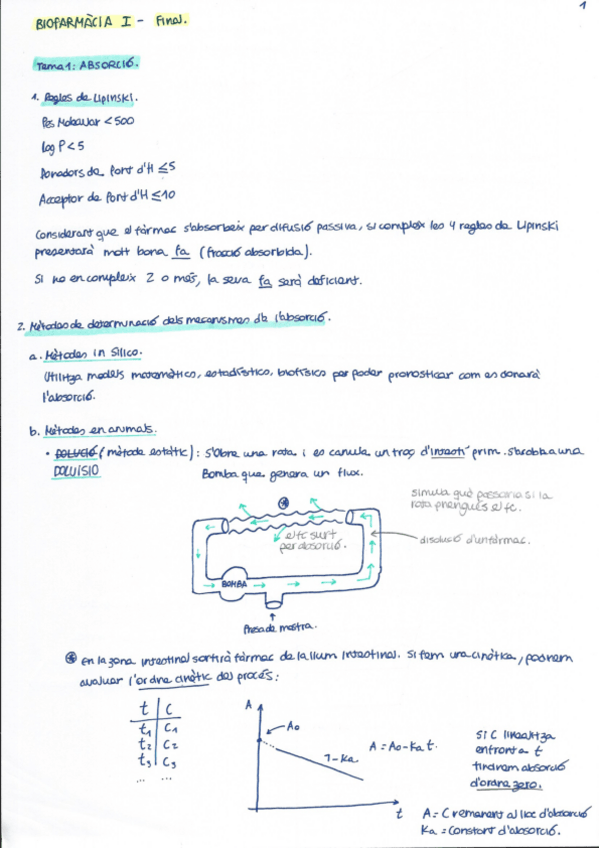 1
BIOFARMÀCIA I - Final.
Tema 1: ABSORCIÓ.
1. Regles de Lipinski.
Pes Molecular < 500
log P < 5
Donadors de Pont d'H ≤ 5
Acceptor de Pont d'H ≤ 10
Considerant que el fàrmac s'absorbeix per difusió passiva, si compleix les 4 regles de Lipinski
presentarà molt bona fa (fracció absorbida).
Si no en compleix 2 o més, la seva fa serà deficient.
2. Mètodes de determinació dels mecanismes de l'absorció.
a. Mètodes in Silico.
Utilitza models matemàtics, estadístics, biofísics per poder pronosticar com es donarà
l'absorció.
b. Mètodes en animals.
• (mètode estàtic): s'obre una rata i es canula un troç d'intestí prim. s'acobla una
DOLUISIO
Bomba que genera un flux.
simula què passaria si la
rata prengués el fc.
el fc surt
per absorció.
dissolució d'un fàrmac.
BOMBA
Presa de mostra.
* En la zona intestinal sortirà fàrmac de la llum intestinal. Si fem una cinètica, podrem
avaluar l'ordre cinètic del procés:
t C
t1 C1
t2 C2
t3 C3
... ...
A
A0
1-Ka
A = A0 - Ka t.
t
Si C linealitza
enfront a t
tindrem absorció
d'ordre zero.
A = C remanent al lloc d'absorció
Ka = Constant d'absorció.